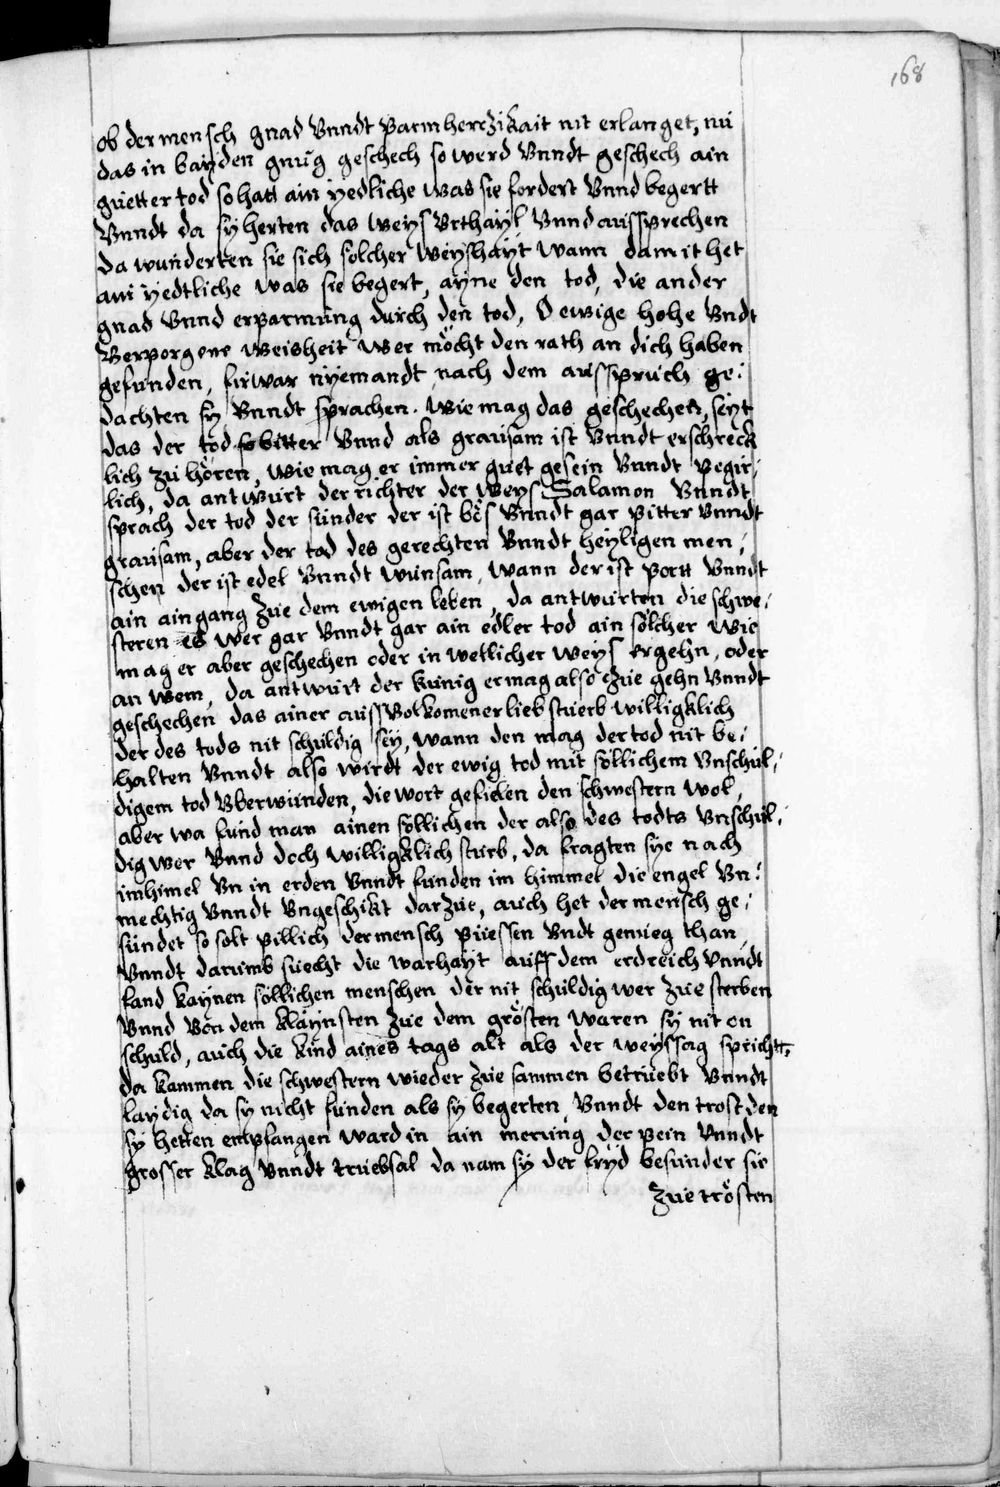 168
ob der mensch gnad Vnndt Parmherczikait nit erlanget, nu
das in bayden gnug geschech so werd Vnndt geschech ain
guetter tod so hatt ain yedliche was sie fordert Vnnd begertt
Vnndt da sy herten das weys Vrthayl Vnnd aussprechen
da wunderten sie sich solcher weyshayt wann damit het
ain yedtliche was sie begert, ayne den tod, die ander
gnad Vnnd erparmung durch den tod, O ewige hohe Vndt
Verporgene weisheit wer möcht den rath an dich haben
gefunden, firwar nyemandt nach dem ausspruch ge:
dachten sy Vnndt sprachen. wie mag das geschechen, seyt
das der tod so bitter Vnnd als grausam ist Vnndt erschreck
lich zu hören, wie mag er immer guet gesein Vnndt pegir,
lich, da antwurt der richter der weys Salamon Vnndt
sprach der tod der sünder der ist bös Vnndt gar pitter Vnndt
grausam, aber der tod des gerechten Vnndt heyligen men,
schen der ist edel Vnndt wunsam, wann der ist portt Vnndt
ain aingang zue dem ewigen leben, da antwurten die schwe,
steren es wer gar Vnndt gar ain edler tod ain solcher wie
mag er aber geschechen oder in wellicher weys ergehn, oder
an wem, da antwurt der kunig er mag also zue gehn Vnndt
geschechen das ainer auss Volkomener lieb stuerb willigklich
der des tods nit schuldig sey, wann den mag der tod nit be,
halten Vnndt also wirdt der ewig tod mit sollichem Vnschul,
digem tod Vberwunden, die wort gefielen den schwestern wol,
aber wa fund man ainen sollichen der also des todts Vnschul,
dig wer Vnnd doch willigklich sturb, da fragten sye nach
im himel Vn in erden Vnndt funden im himmel die engel Vn:
mechtig Vnndt Vngeschikt darzue, auch het der mensch ge,
sündet so solt pillich der mensch püessen Vndt genueg than,
Vnndt darumb suecht die warhayt auff dem erdreich Vnndt
fand kaynen sollichen menschen der nit schuldig wer zue sterben
Vnnd Von dem klaynsten zue dem grösten waren sy nit on
schuld, auch die kind aines tags alt als der weyssag sprichtt,
da kammen die schwestern wieder zue sammen betruebt Vnndt
laydig da sy nicht funden als sy begerten, Vnndt den trost den
sy hetten empfangen ward in ain merung der pein Vnndt
grosser klag Vnndt truebsal da nam sy der fryd besunder sie
zue trösten